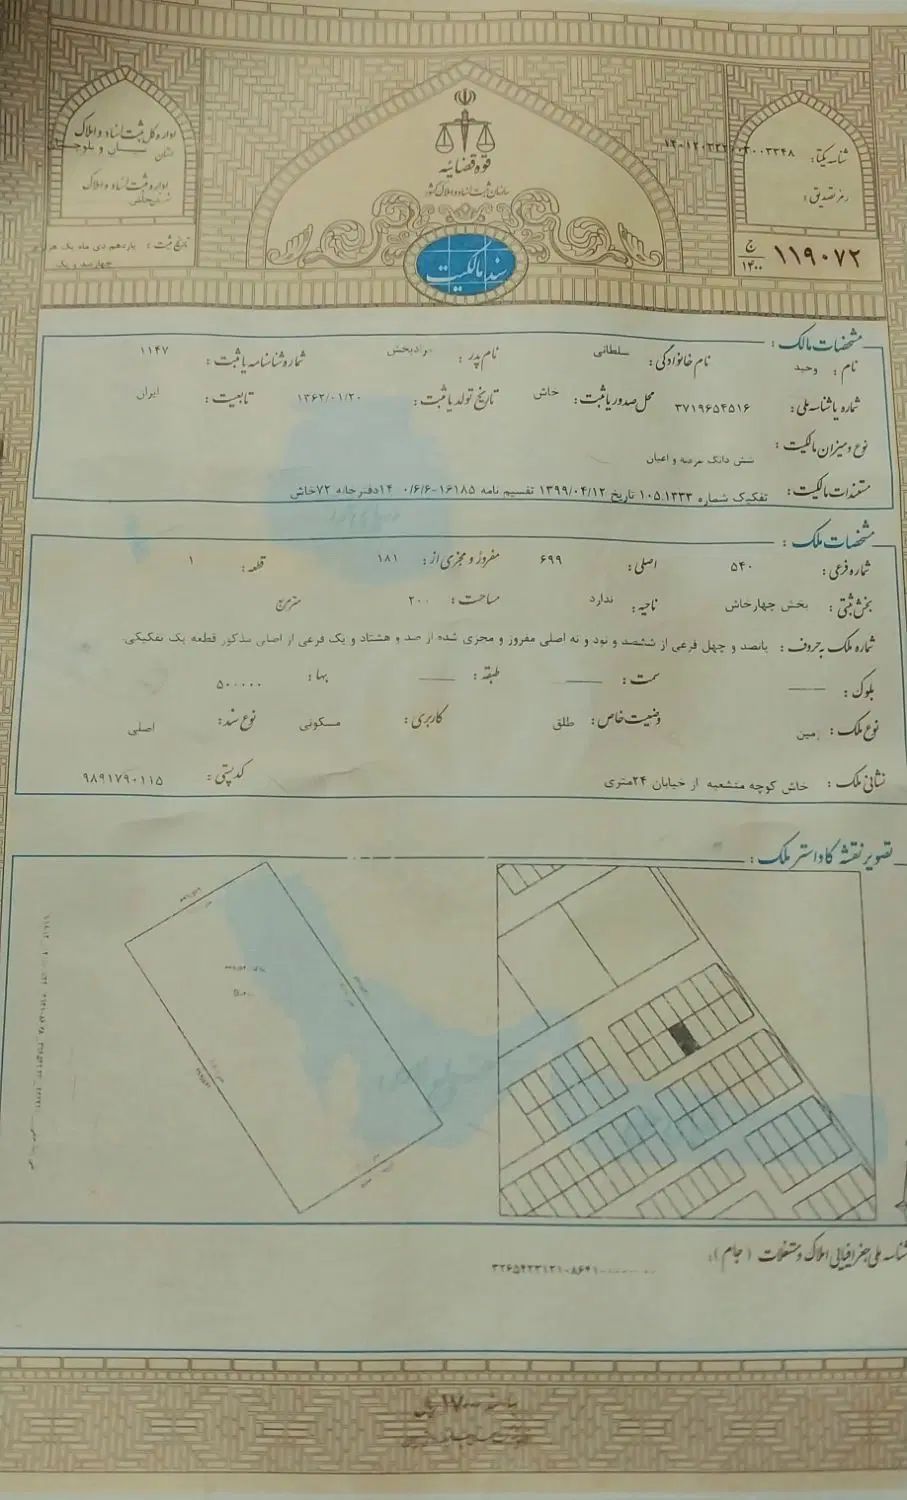 قوه قضائیه
سازمان ثبت اسناد و املاک کشور
سند مالکیت
اداره کل ثبت اسناد و املاک
استان
اداره ثبت اسناد و املاک
تاریخ ثبت : یازدهم دی ماه یک هزار
چهارصد و یک
شناسه یکتا :
رمز تصدیق :
۱۱۹۰۷۲ ج ۱۴۰۰
مشخصات مالک :
نام : وحید نام خانوادگی : سلطانی نام پدر : مرادبخش شماره شناسنامه یا ثبت : ۱۱۴۷
شماره یا شناسه ملی : ۳۷۱۹۶۵۴۵۱۶ محل صدور یا ثبت : خاش تاریخ تولد یا ثبت : ۱۳۶۲/۰۱/۲۰ تابعیت : ایران
نوع و میزان مالکیت : شش دانگ عرصه و اعیان
مستندات مالکیت : تفکیک شماره ۱۰۵.۱۳۳۳ تاریخ ۱۳۹۹/۰۴/۱۲ تقسیم نامه ۱۶۱۸۵-۰/۶/۶ ۱۴دفترخانه ۷۲خاش
مشخصات ملک :
شماره فرعی : ۵۴۰ اصلی : ۶۹۹ مفروز و مجزی از : ۱۸۱ قطعه : ۱
بخش ثبتی : بخش چهارخاش ناحیه : ندارد مساحت : ۲۰۰ مترمربع
شماره ملک به حروف : پانصد و چهل فرعی از ششصد و نود و نه اصلی مفروز و مجزی شده از صد و هشتاد و یک فرعی از اصلی مذکور قطعه یک تفکیکی.
بلوک : سمت : طبقه : بها : ۵۰۰۰۰۰
نوع ملک : زمین وضعیت خاص : طلق کاربری : مسکونی نوع سند : اصلی
نشانی ملک : خاش کوچه منشعبه از خیابان ۲۴متری کد پستی : ۹۸۹۱۷۹۰۱۱۵
تصویر نقشه کاداستر ملک :
شناسه ملی جغرافیایی املاک و مستغلات ( جام ) :